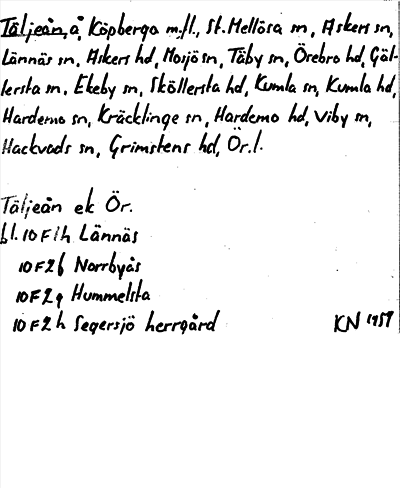 Täljeån, å, Köpberga m.fl., St. Mellösa sn, Askers sn,
Lännäs sn, Askers hd, Mosjö sn, Täby sn, Örebro hd, Gäl-
lersta sn, Ekeby sn, Sköllersta hd, Kumla sn, Kumla hd,
Hardemo sn, Kräcklinge sn, Hardemo hd, Viby sn,
Hackvads sn, Grimstens hd, Ör.l.
Täljeån ek Ör.
bl. 10F1h Lännäs
10F2f Norrbyås
10F2g Hummelsta
10F2h Segersjö herrgård
KN 1957